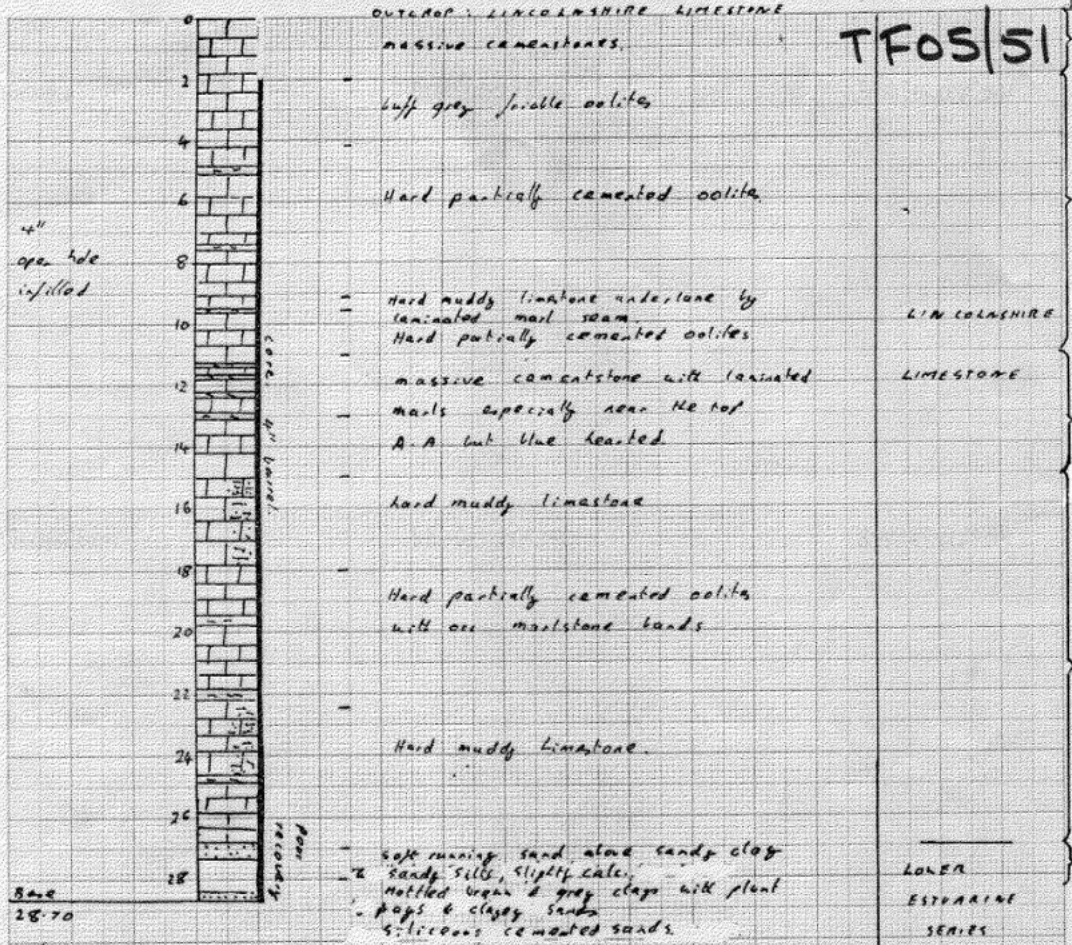 OUTCROP : LINCOLNSHIRE LIMESTONE
TF05/51
0
massive cementstones.
2
buff grey friable oolites
4
Hard partially cemented oolites
6
4"
open hole
infilled
8
Hard muddy limestone underlane by
laminated marl seam.
10
Hard partially cemented oolites
LINCOLNSHIRE
LIMESTONE
core. 4" barrel.
12
massive cementstone with laminated
marls especially near the top
14
A.A but blue hearted
16
hard muddy limestone
18
Hard partially cemented oolites
20
with occ marlstone bands
22
24
Hard muddy Limestone.
26
Poor recovery
28
soft running sand above sandy clay
sandy silts, slightly calc.
Mottled brown & grey clays with plant
& clayey sands
Siliceous cemented sands
LOWER
ESTUARINE
SERIES
Base
28.70